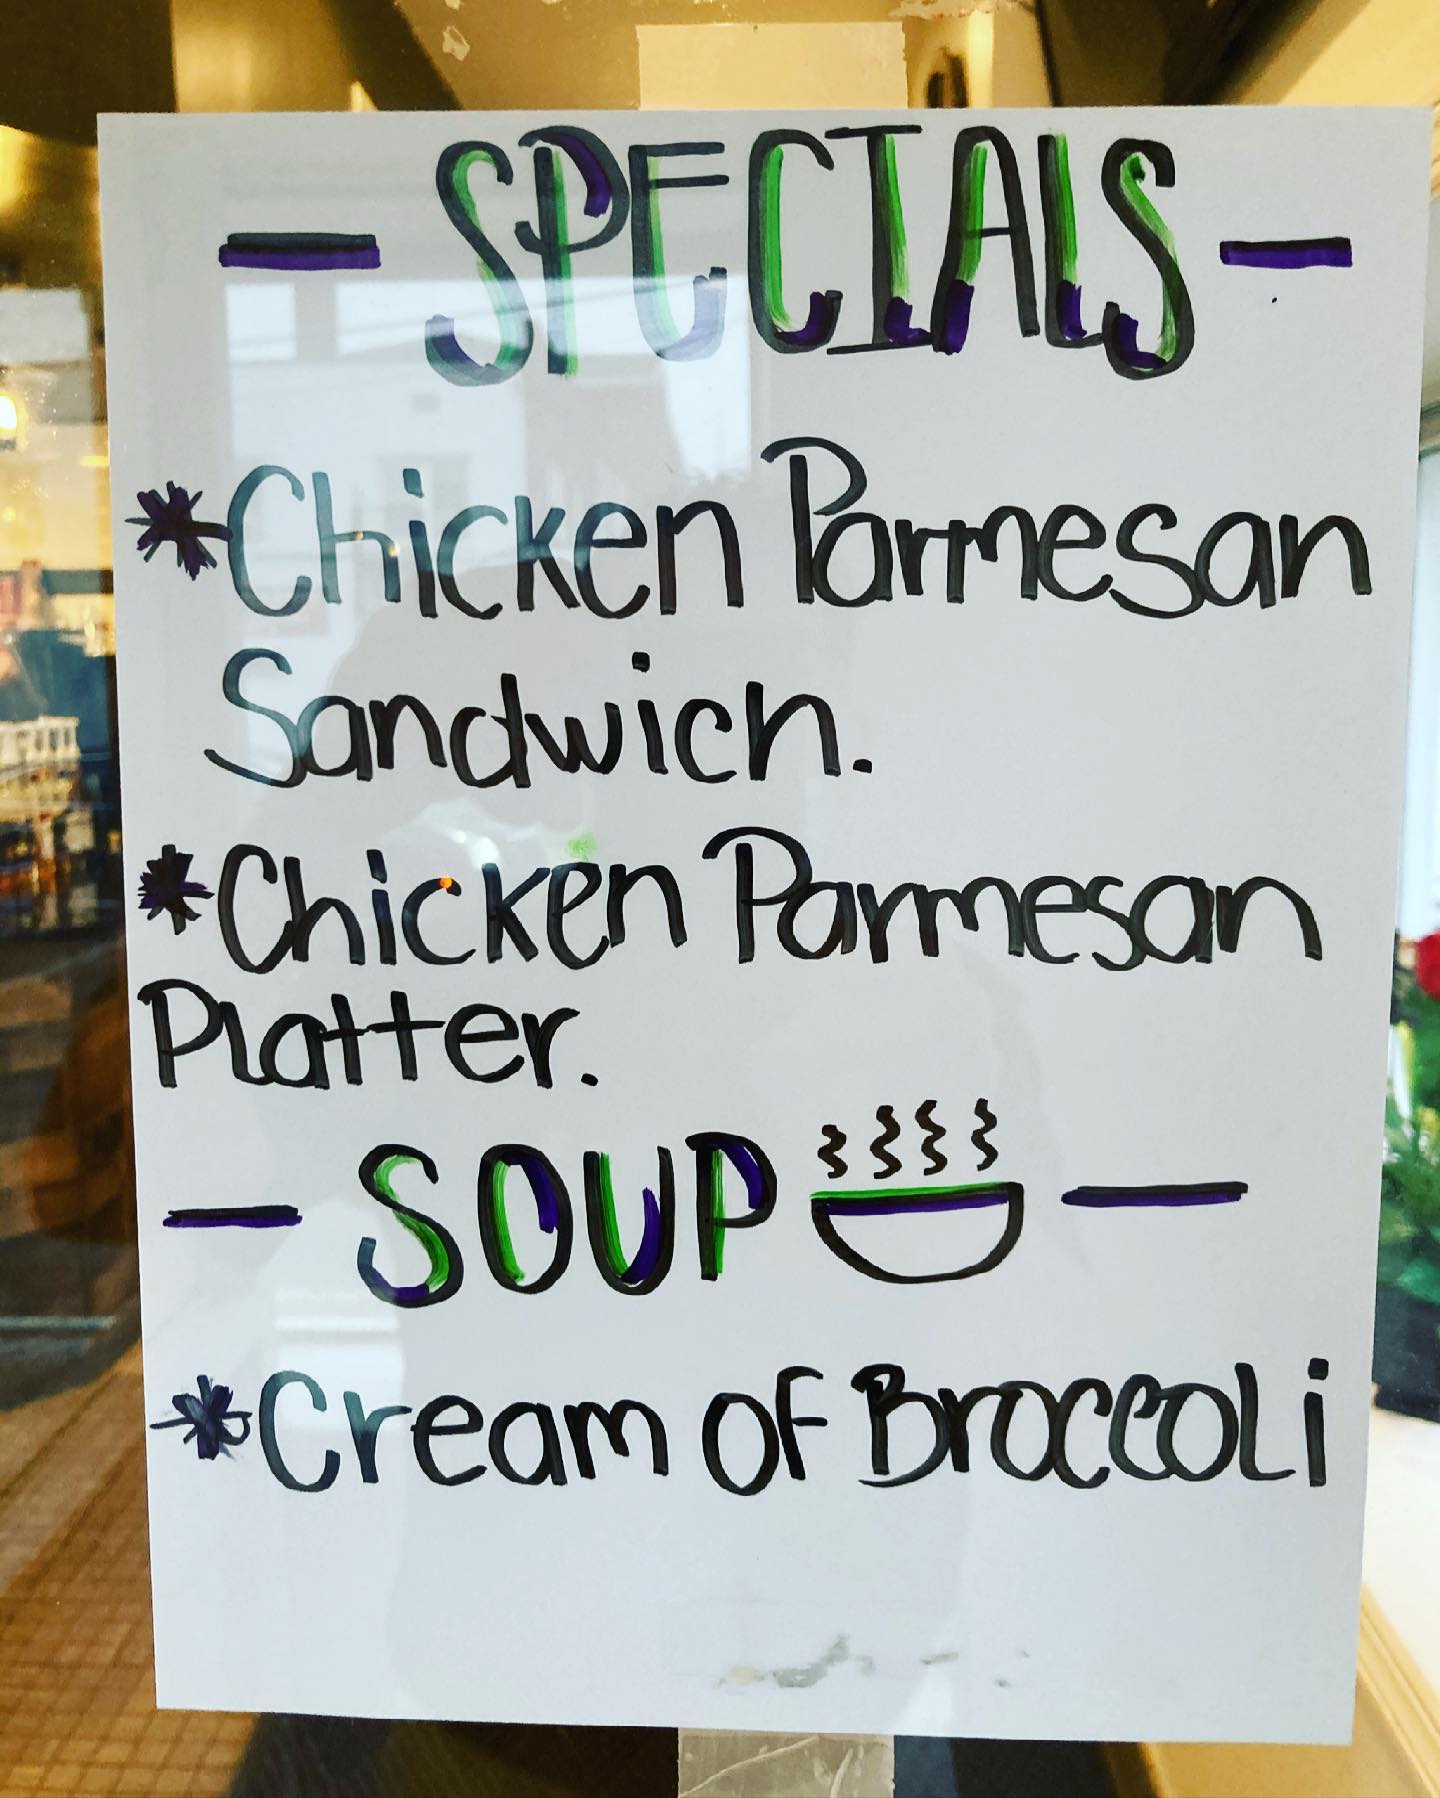 — SPECIALS —
*Chicken Parmesan
Sandwich.
*Chicken Parmesan
Platter.
— SOUP —
*Cream OF BroccoLi